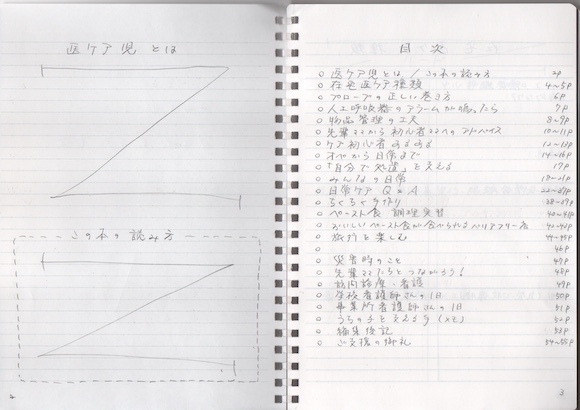 医ケア児とは
この本の読み方
2
目次
○ 医ケア児とは / この本の読み方 2p
○ 在宅医ケア種類 4~5p
○ プローブの正しい巻き方 6p
○ 人工呼吸器のアラームが鳴ったら 7p
○ 物品管理の工夫 8~9p
○ 先輩ママから初心者ママへのアドバイス 10~11p
○ ケア初心者あるある 12~13p
○ オペから日常まで 14~16p
○ 「自分で処置」を考える 17p
○ みんなの日常 18~21p
○ 日常ケア Q&A 22~37p
○ ちくちく手作り 38~39p
○ ペースト食 調理実習 40~41p
○ おいしいペースト食が食べられるバリアフリー店 42~43p
○ 旅行を楽しむ 44~45p
○ 46p
○ 災害時のこと 47p
○ 先輩ママたちとつながろう! 48p
○ 訪問診療・看護 49p
○ 学校看護師さんの1日 50p
○ 事業所看護師さんの1日 51p
○ うちの子を支える手 (メモ) 52p
○ 編集後記 53p
○ ご支援の御礼 54~55p
3